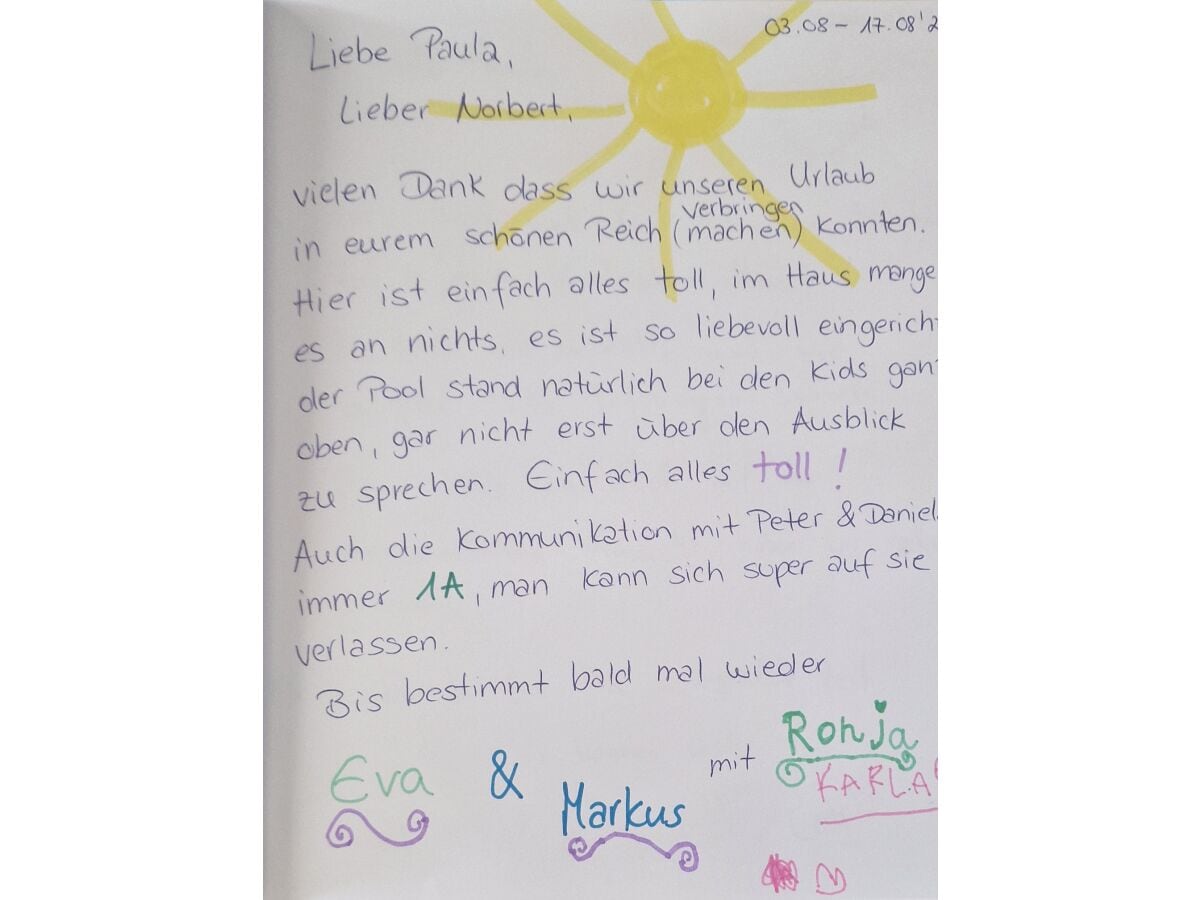 03.08 – 17.08'2
Liebe Paula,
Lieber Norbert,
vielen Dank dass wir unseren Urlaub
verbringen
in eurem schönen Reich (machen) konnten.
Hier ist einfach alles toll, im Haus mange
es an nichts, es ist so liebevoll eingerich
der Pool stand natürlich bei den Kids gan
oben, gar nicht erst über den Ausblick
zu sprechen. Einfach alles toll!
Auch die Kommunikation mit Peter & Daniel
immer 1A, man kann sich super auf sie
verlassen.
Bis bestimmt bald mal wieder
Eva & Markus mit Ronja
KARLA